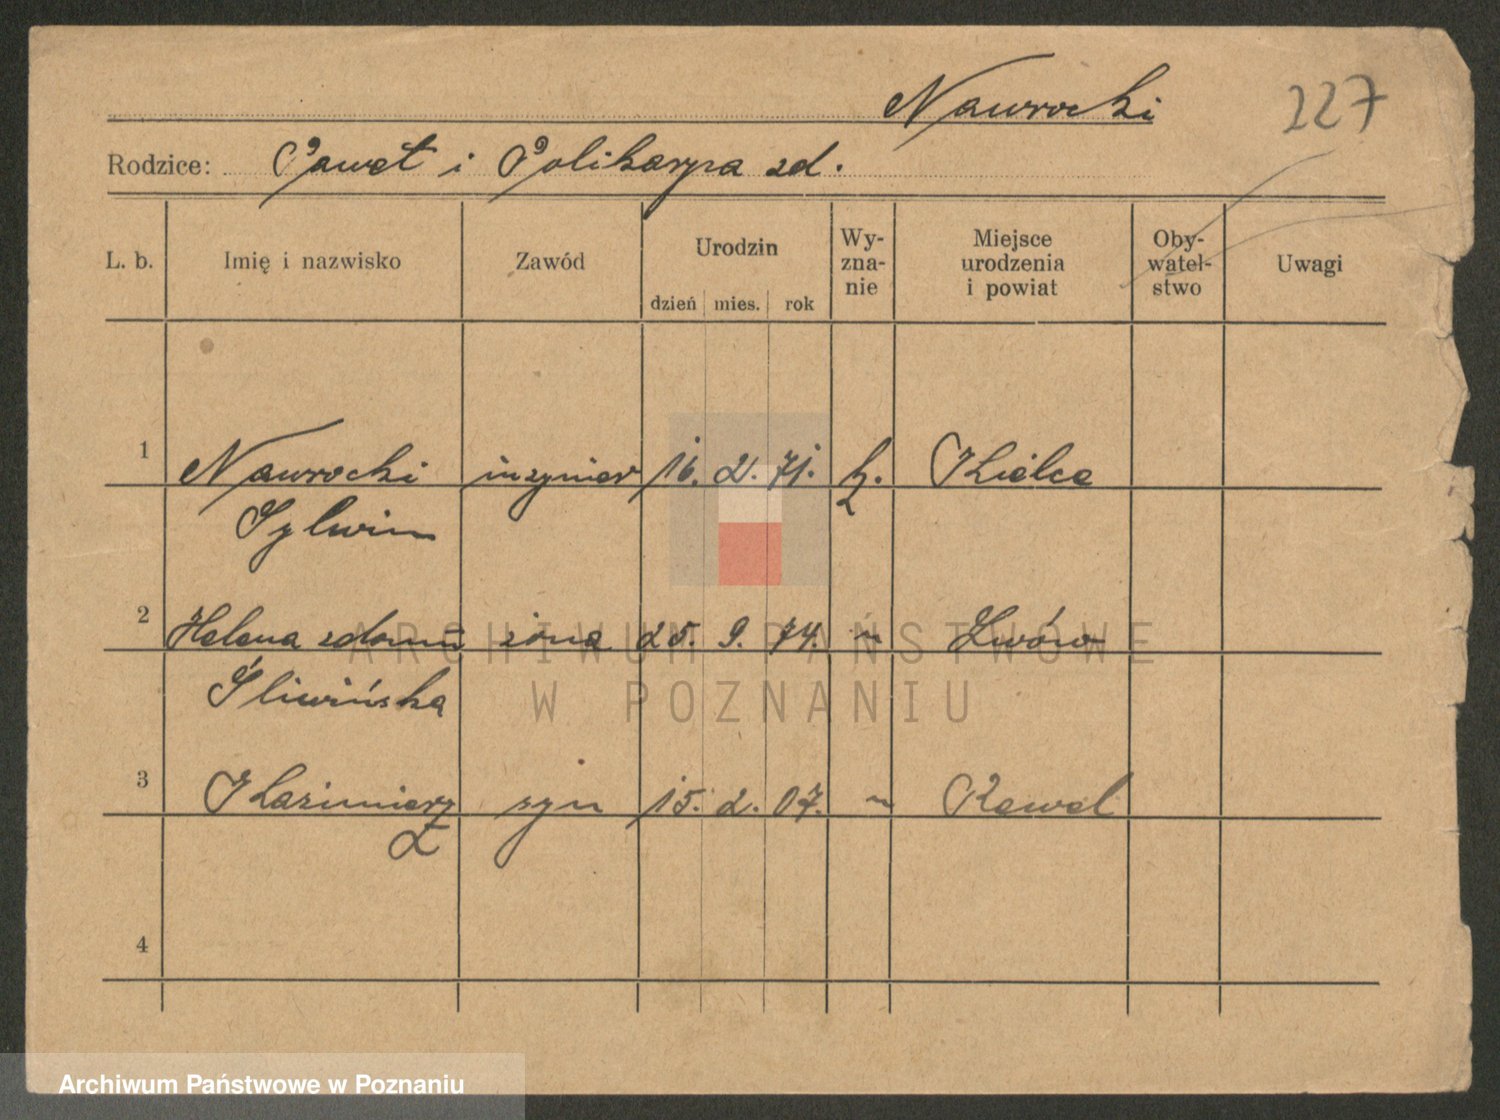 Nawrocki
227
Rodzice: Paweł i Polikarpa zd.
L. b. Imię i nazwisko Zawód Urodzin dzień mies. rok Wy-zna-nie Miejsce urodzenia i powiat Oby-watel-stwo Uwagi
1 Nawrocki inżynier 16. 2. 71. k. Kielce
Sylwin
2 Helena z domu żona 25. 9. 74. " Lwów
Śliwińska
3 Kazimierz syn 15. 2. 07. " Kowel
4
ARCHIWUM PAŃSTWOWE
W POZNANIU
Archiwum Państwowe w Poznaniu